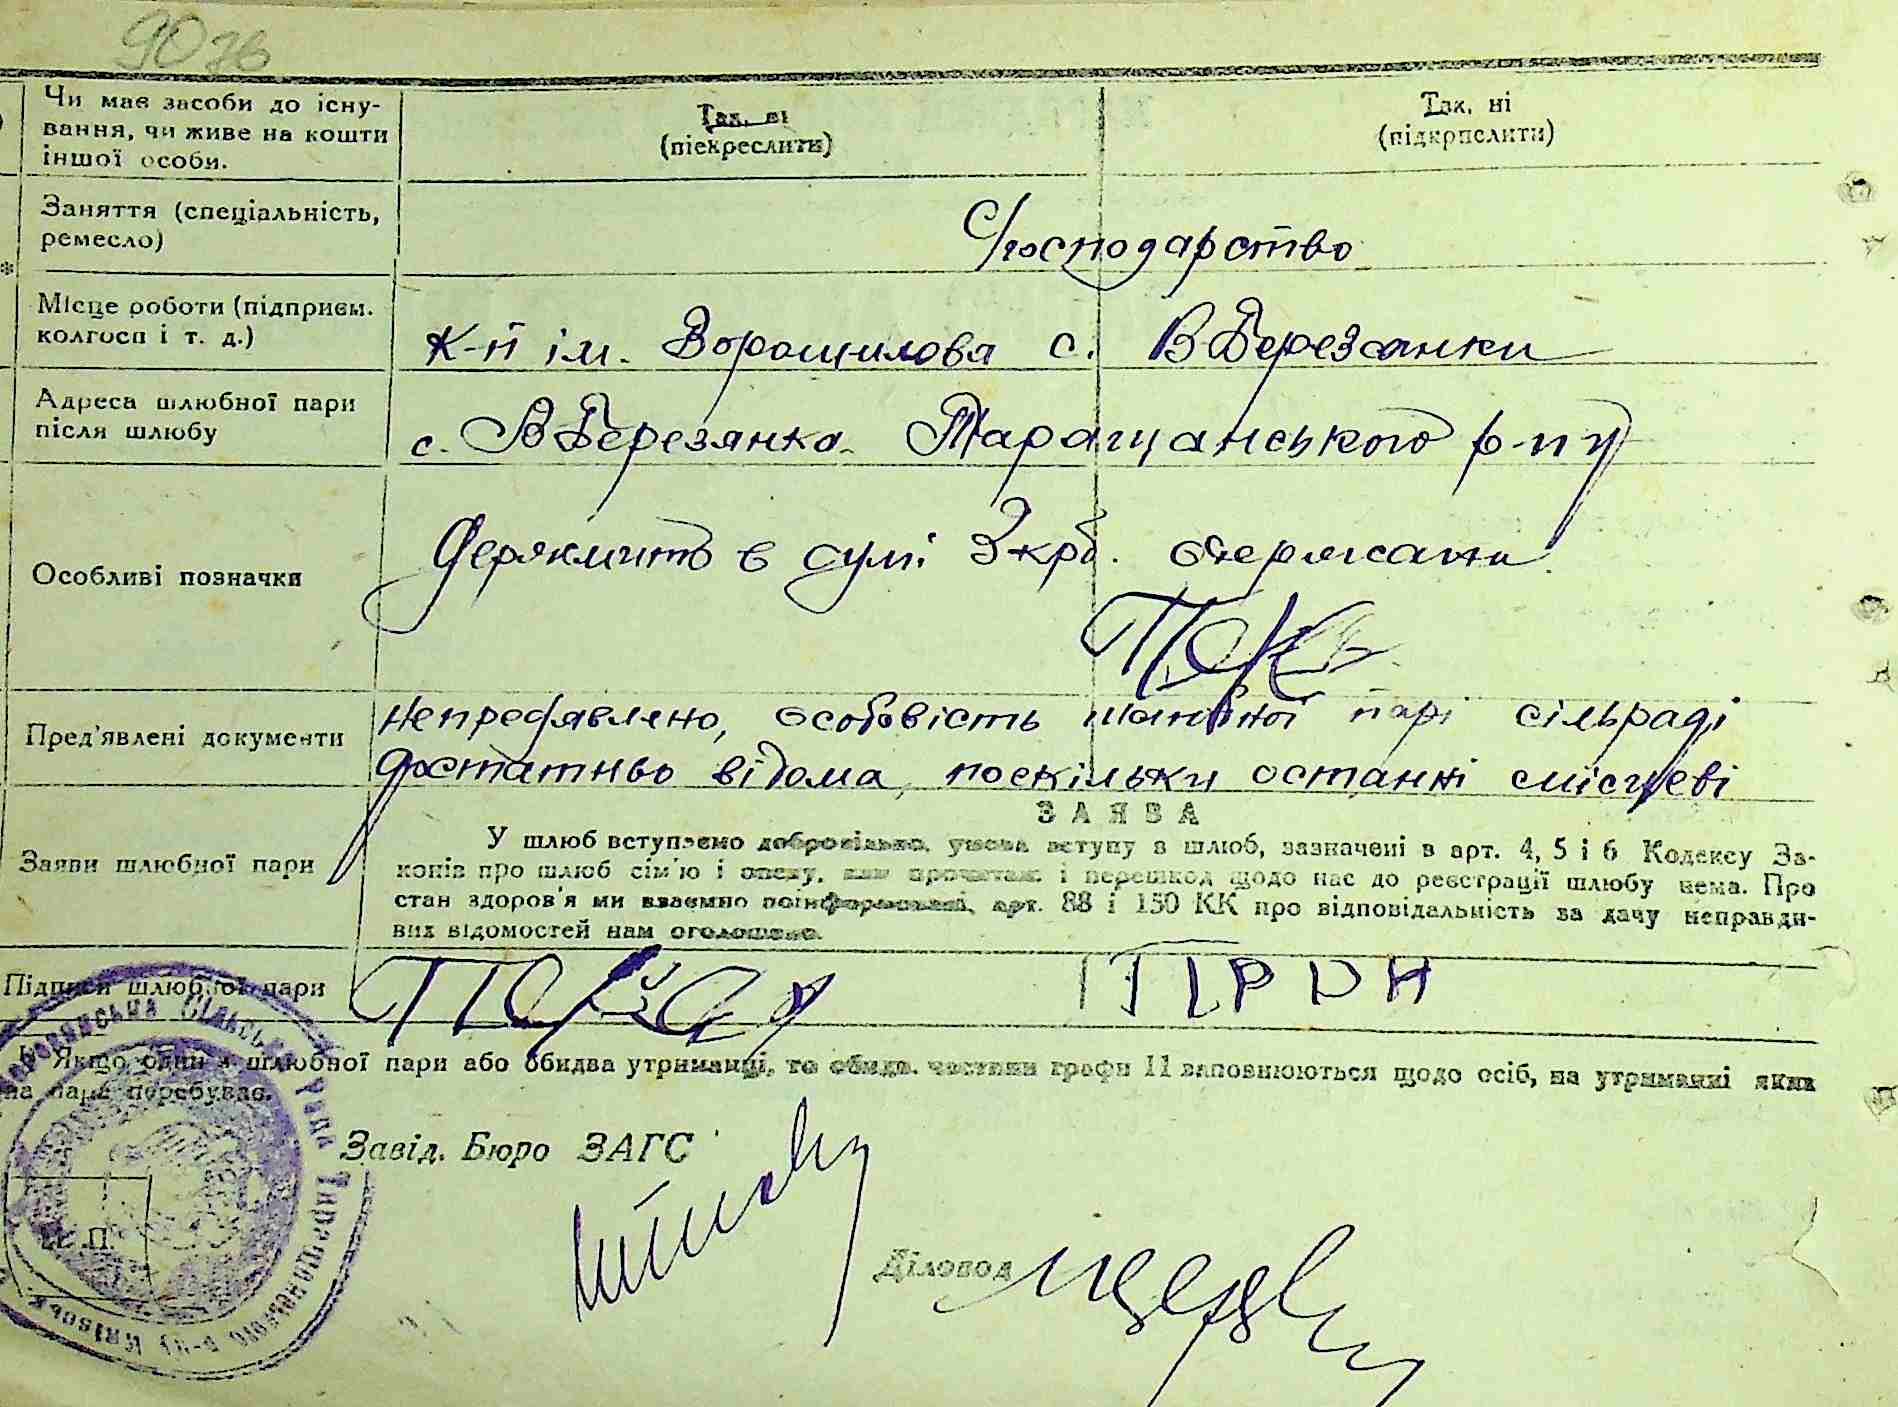 90 зв
Чи має засоби до існу-
вання, чи живе на кошти
іншої особи.
Так, ні
(піекреслити)
Так, ні
(підкрпслити)
Заняття (спеціальність,
ремесло)
С/господарство
Місце роботи (підприєм.
колгосп і т. д.)
к-п ім. Ворошилова с. ВБерезанки
Адреса шлюбної пари
після шлюбу
с. ВБерезянка Таращанського р-ну
Особливі позначки
Держмито в сумі 3 крб. одержати
Пред'явлені документи
непредявлено, особовість парі сільраді
достатньо відома, поскільки останні смісцеві
ЗАЯВА
Заяви шлюбної пари
У шлюб вступаємо добровільно, умови вступу в шлюб, зазначені в арт. 4, 5 і 6 Кодексу За-
конів про шлюб сім'ю і опеку, нам прочитані і перешкод щодо нас до реєстрації шлюбу нема. Про
стан здоров'я ми взаємно поінформовані, арт. 88 і 150 КК про відповідальність за дачу неправди-
вих відомостей нам оголошено.
Підписи шлюбної пари
Якщо один з шлюбної пари або обидва утриманці, то обидв. частини графи 11 заповнюються щодо осіб, на утриманні яких
на пара перебуває.
Завід. Бюро ЗАГС
М. П.
Діловод
Сільська Рада Таращанського р-ну Київськ